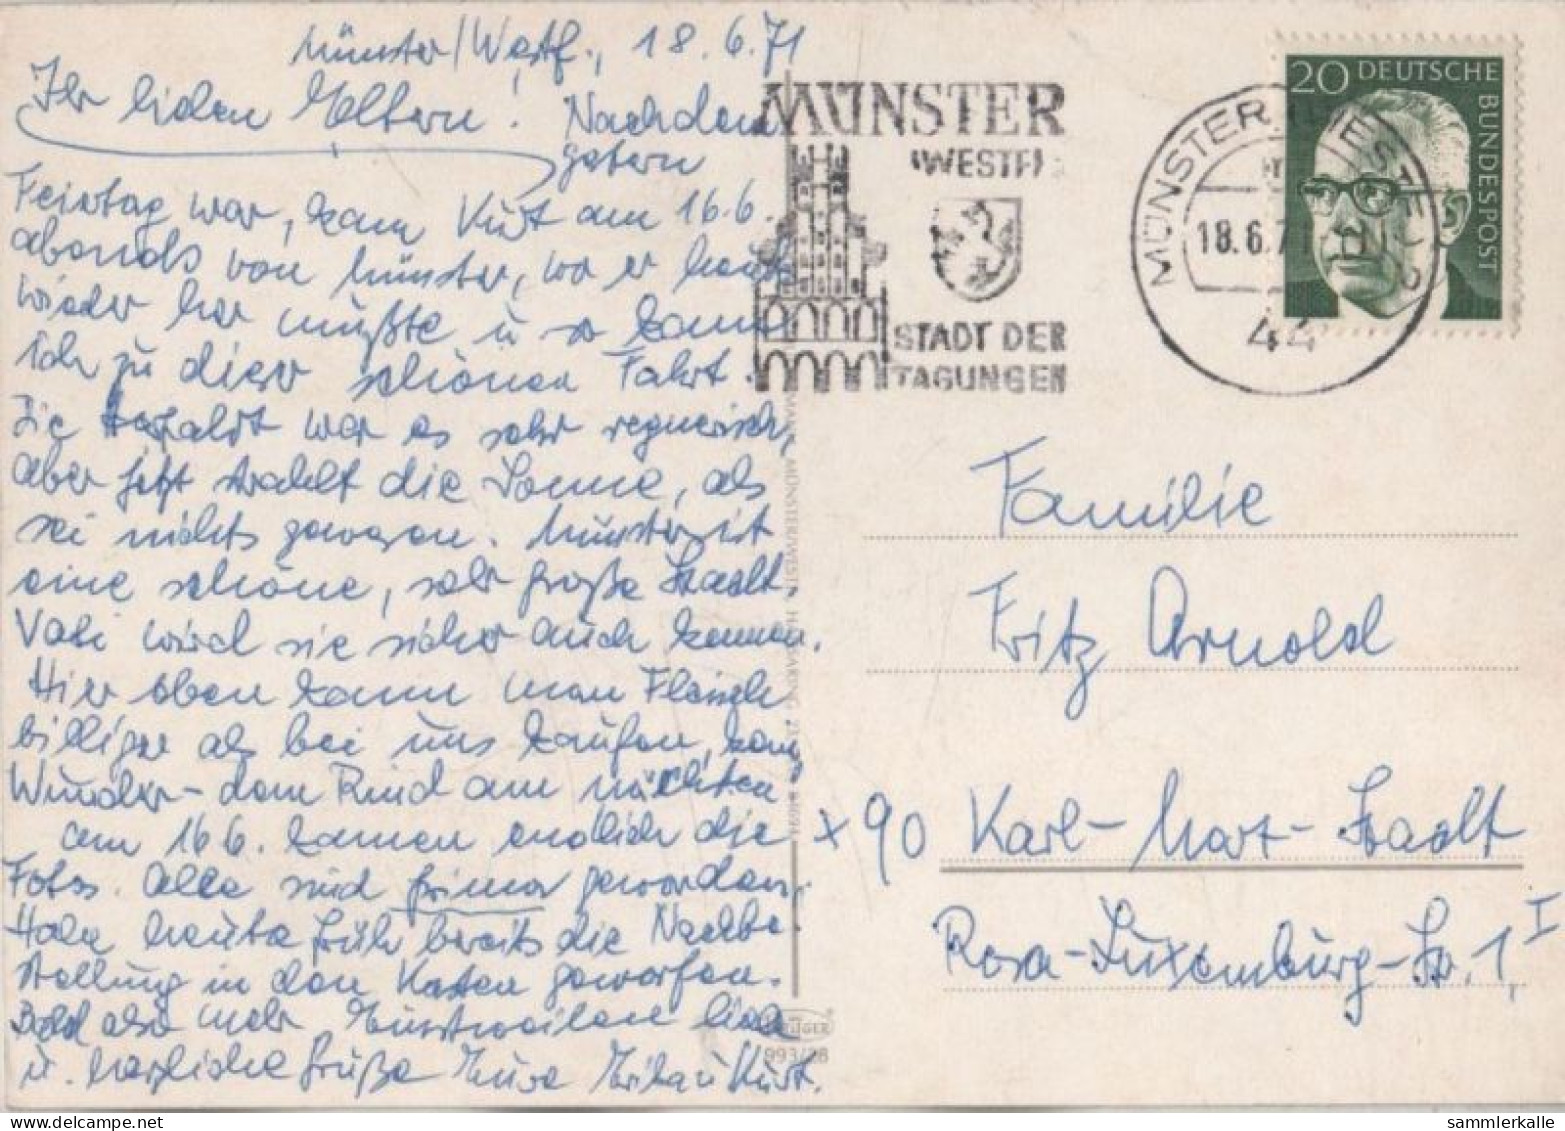 Münster/Westf., 18.6.71
Ihr lieben Eltern! Nachdem
gestern
Feiertag war, kam Kurt am 16.6.
abends von Münster, wo er heute
wieder her mußte u. so kam
ich zu dieser schönen Fahrt.
Die Herfahrt war es sehr regnerisch,
aber jetzt strahlt die Sonne, als
sei nichts gewesen. Münster ist
eine schöne, sehr große Stadt.
Vati wird sie sicher auch kennen.
Hier oben kann man Fleisch
billiger als bei uns kaufen, kein
Wunder - dem Rind am nächsten
am 16 6. kamen endlich die
Fotos. Alle sind prima geworden.
Habe heute früh bereits die Nachbe-
stellung in den Kasten geworfen.
Bald also mehr. Einstweilen liebe
u. herzliche Grüße Eure Erika u. Kurt.
MÜNSTER
(WESTF)
STADT DER
TAGUNGEN
MÜNSTER, WESTF
18.6.7
44
20 DEUTSCHE
BUNDESPOST
Familie
Fritz Arnold
x 90 Karl-Marx-Stadt
Rosa-Luxemburg-Str. 1, I
KRÜGER
993/28
sammlerkalle